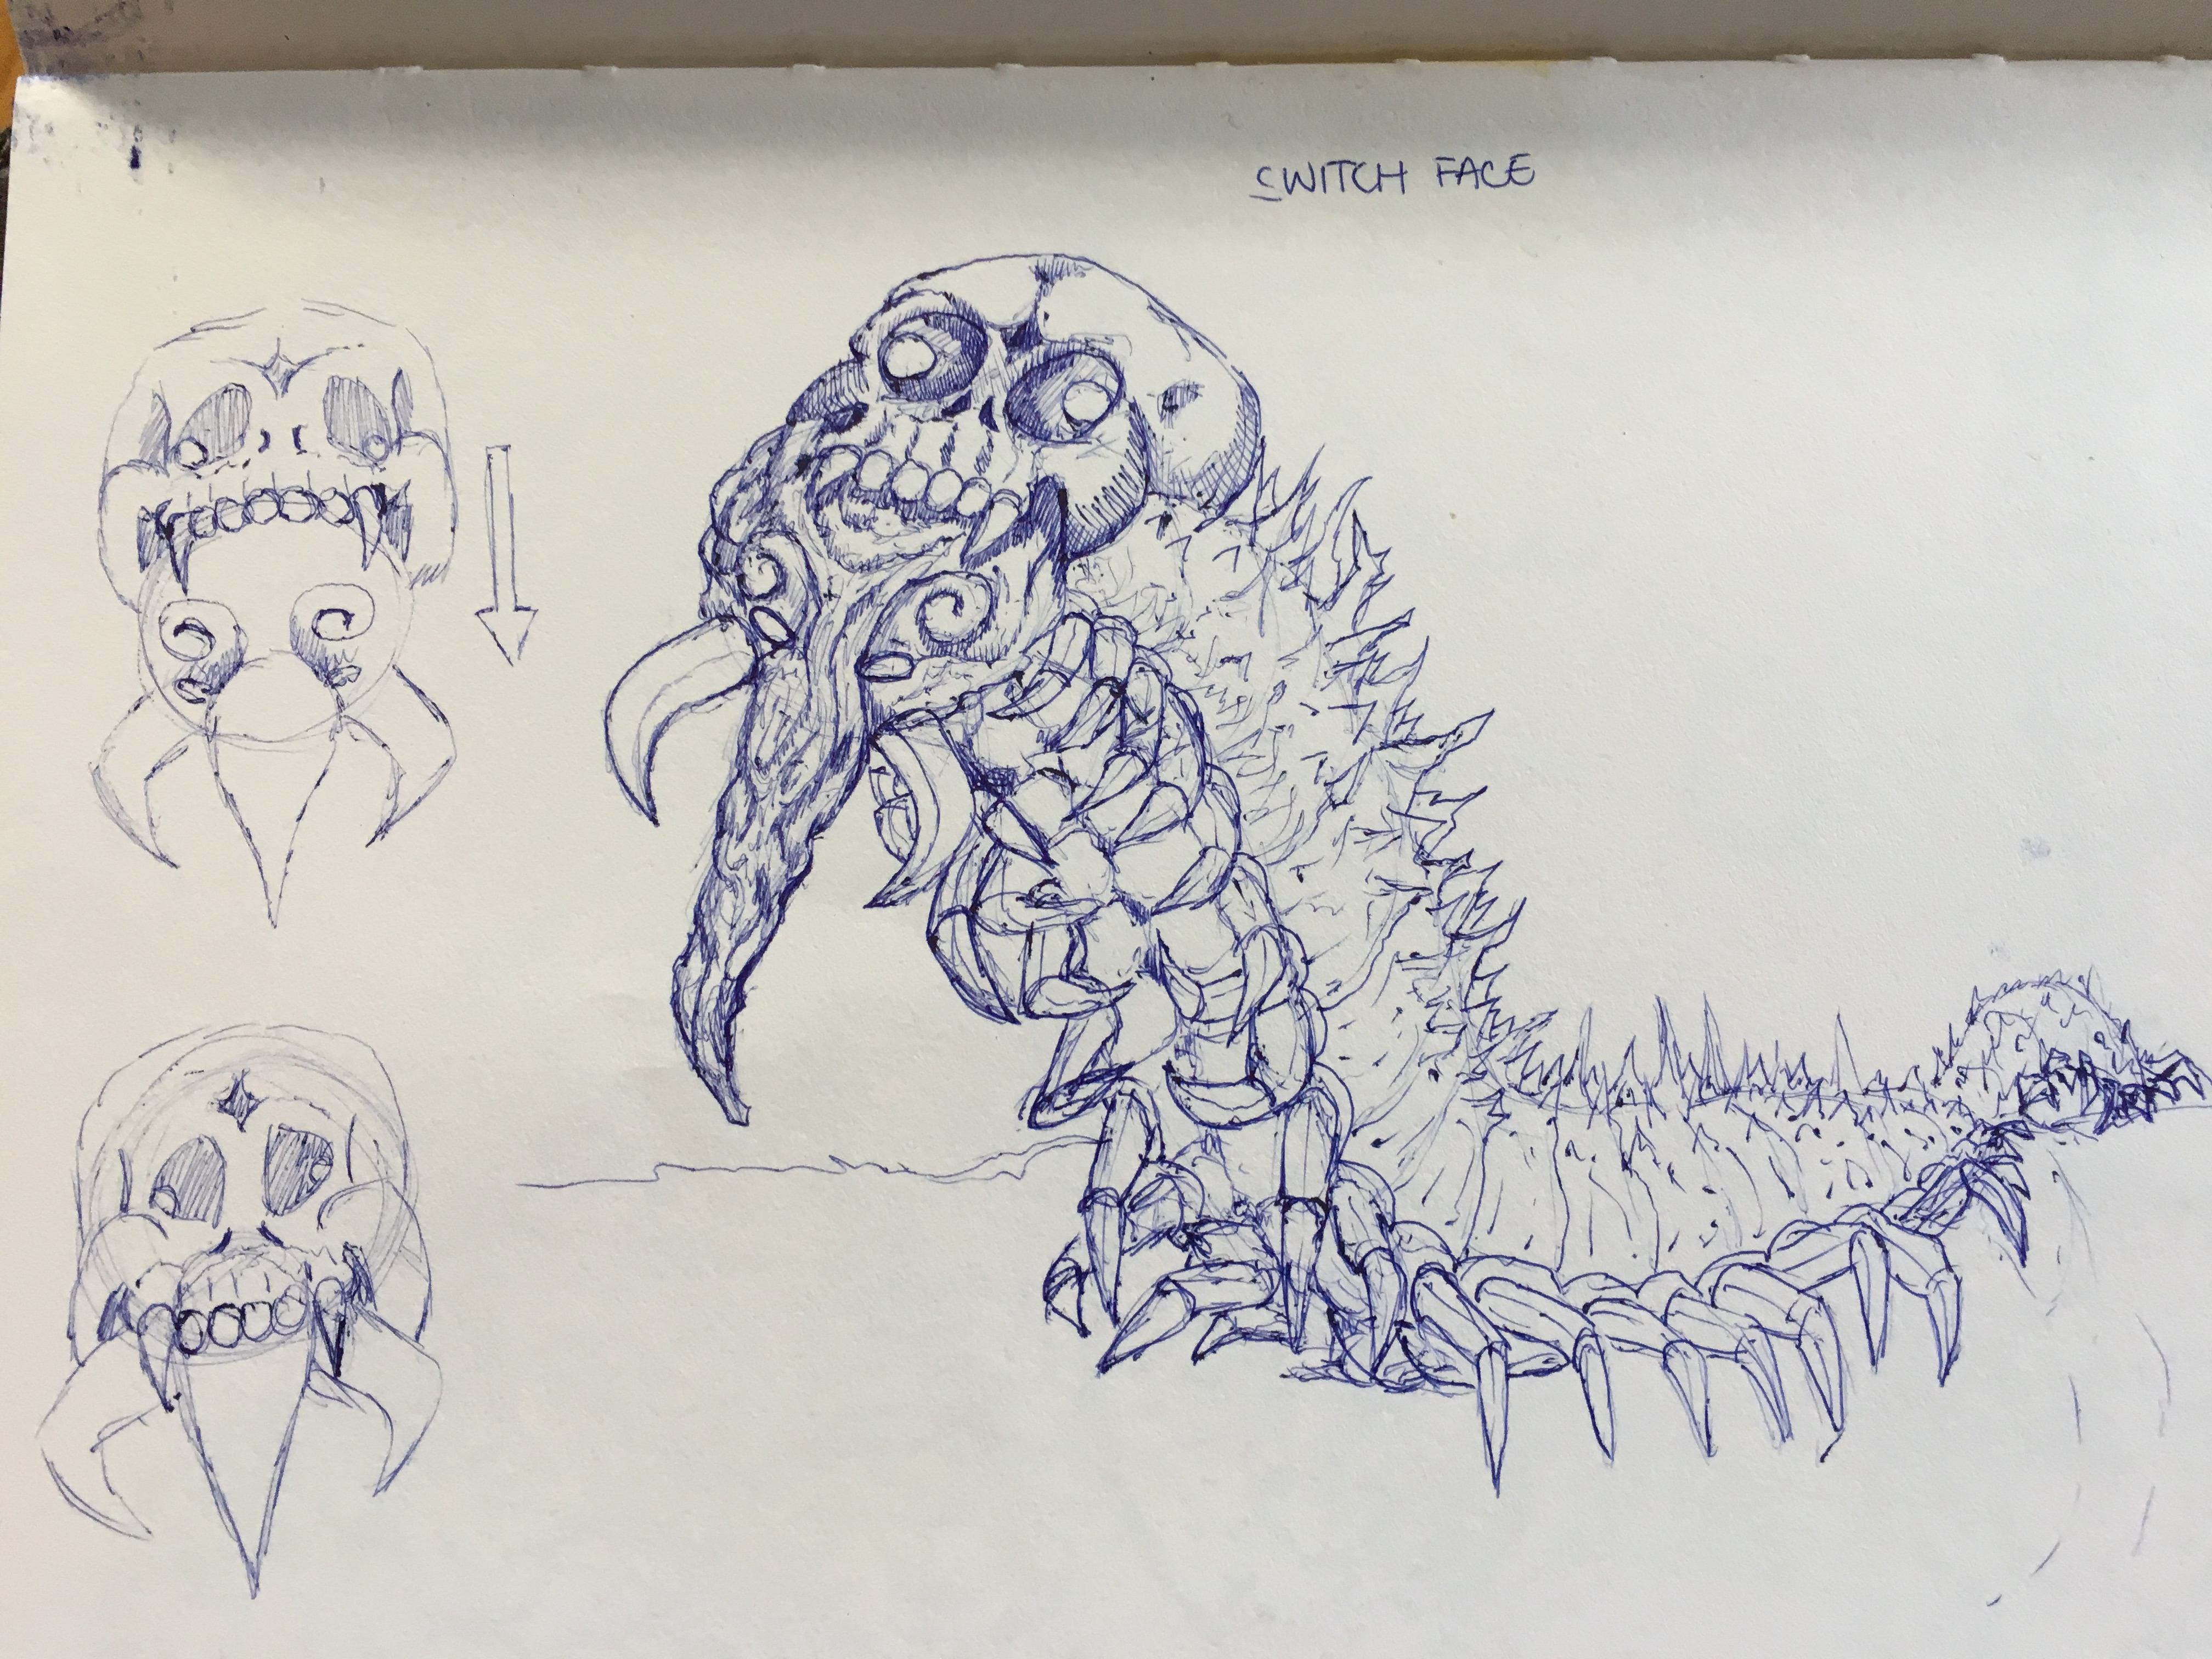 SWITCH FACE